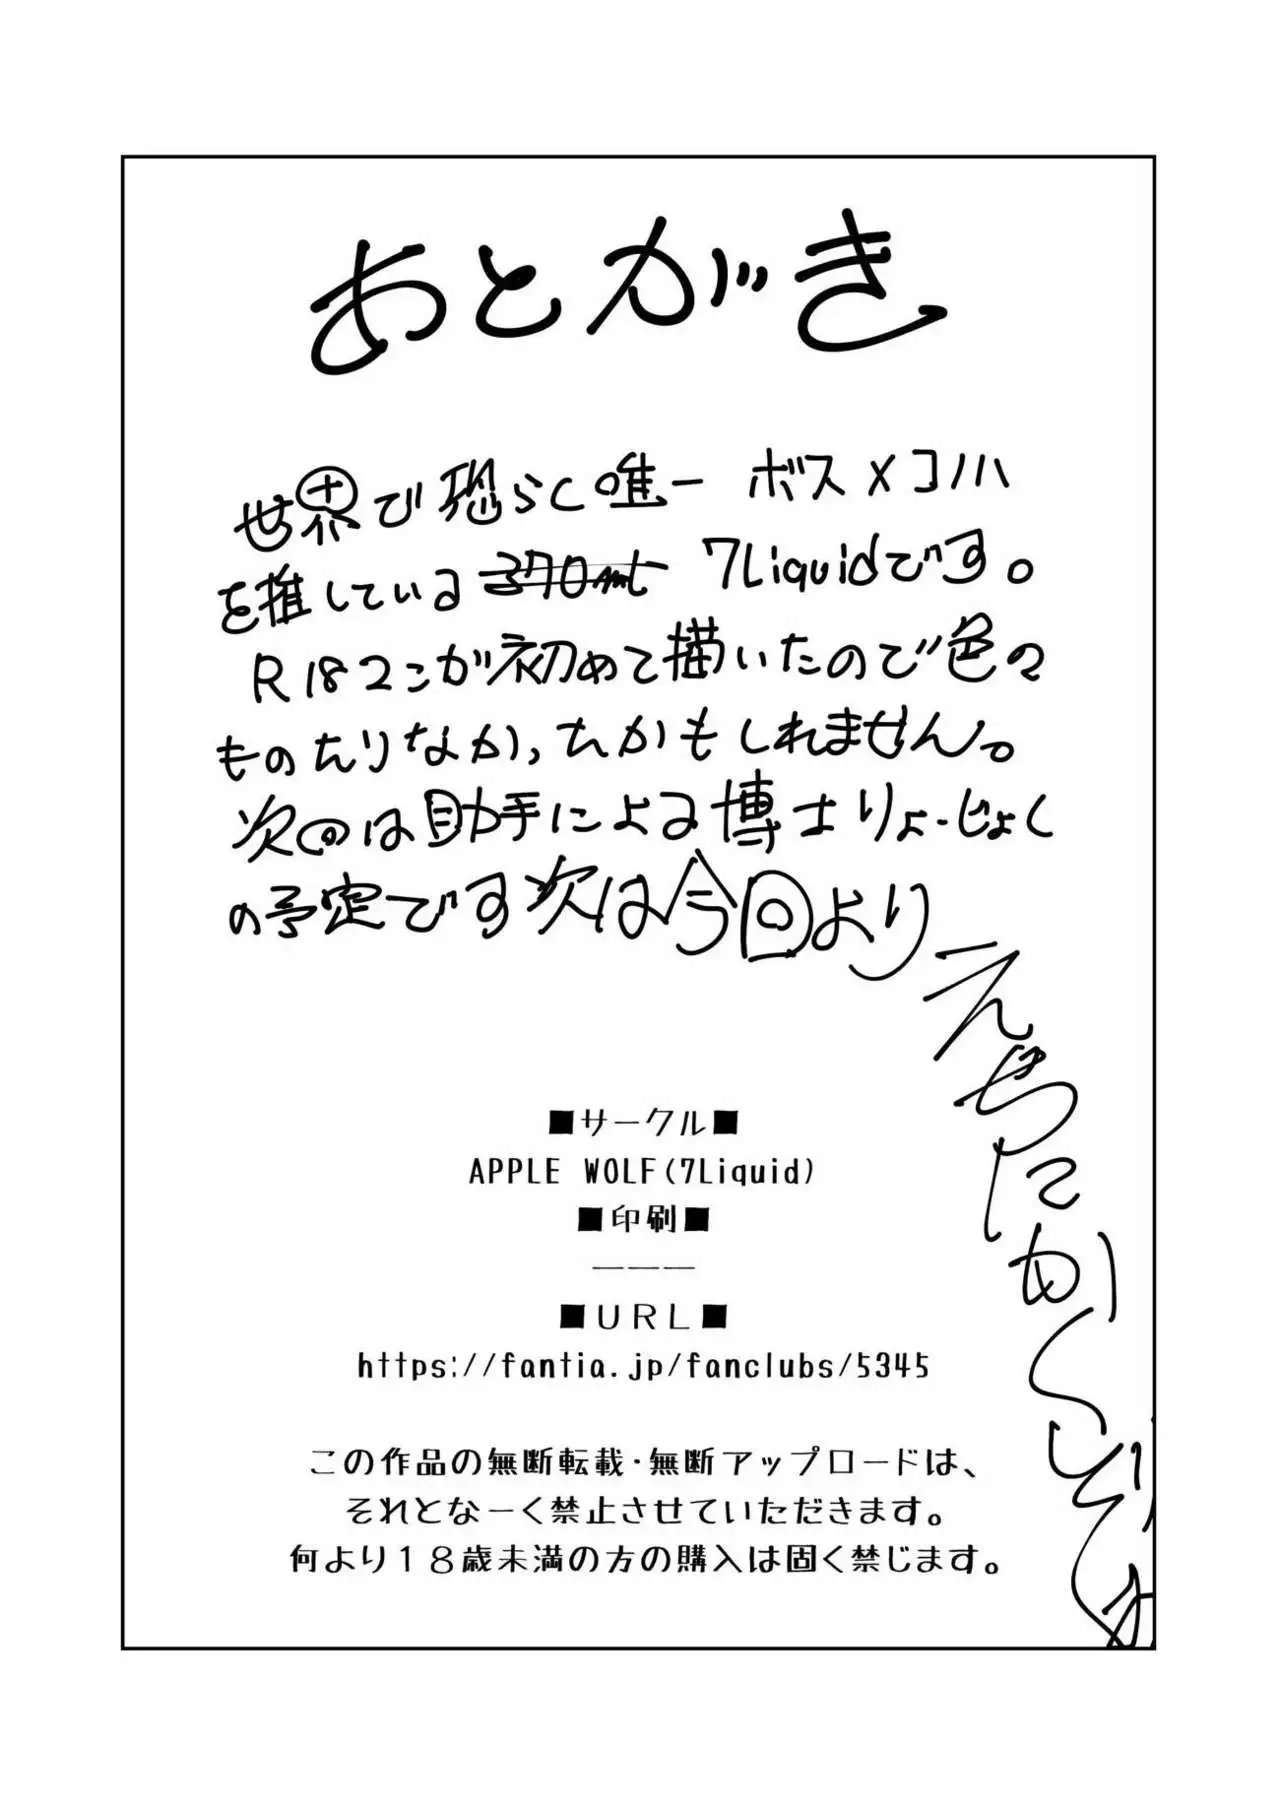 あとがき
世界で恐らく唯一 ボス×コノハ
を推している 370ml 7Liquidです。
R18マンガ初めて描いたので色々
ものたりなかったかもしれません。
次のは助手による博士りょーじょく
の予定です次は今回より
えちにかくぞ
■サークル■
APPLE WOLF(7Liquid)
■印刷■
ーーー
■URL■
https://fantia.jp/fanclubs/5345
この作品の無断転載・無断アップロードは、
それとなーく禁止させていただきます。
何より18歳未満の方の購入は固く禁じます。